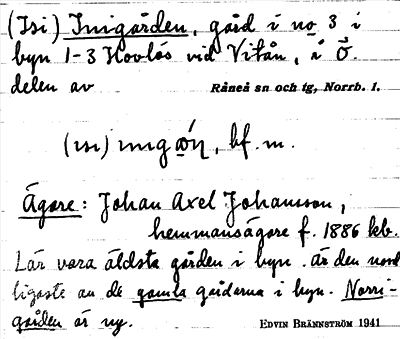 (Isi) Inigården, gård i no 3 i
byn 1-3 Hovlös vid Vitån, i Ö.
delen av Råneå sn och tg, Norrb. l.
bf. m.
Ägare: Johan Axel Johansson,
hemmansägare f. 1886 kb.
Lär vara äldsta gården i byn. är den nord
ligaste av de gamla gårdarna i byn. Norri-
gården är ny. EDVIN BRÄNNSTRÖM 1941